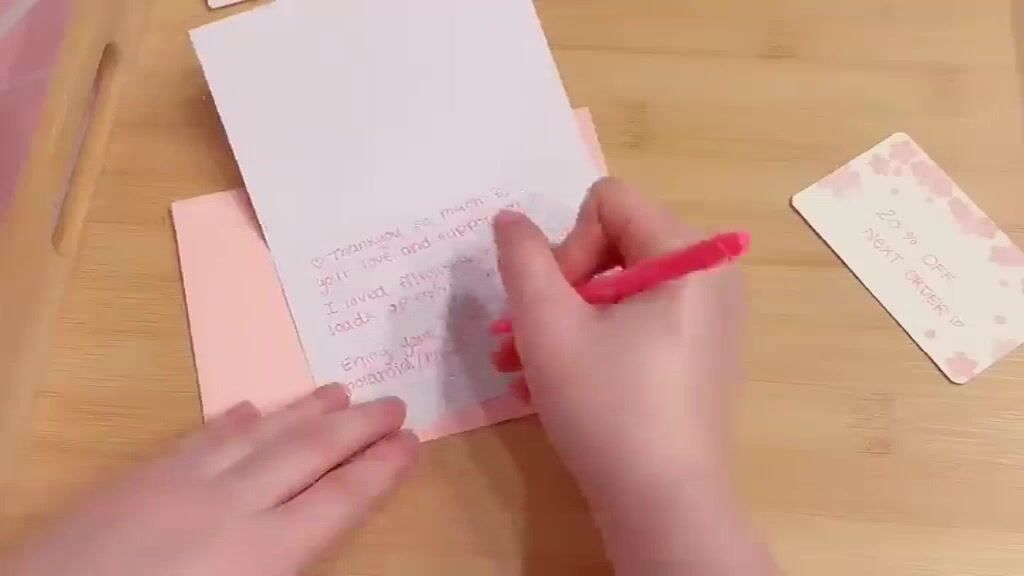 ♡ Thankyou so much
your love and support
I loved
loads
Enjoy your
polaroid/
20% OFF
NEXT ORDER ♡